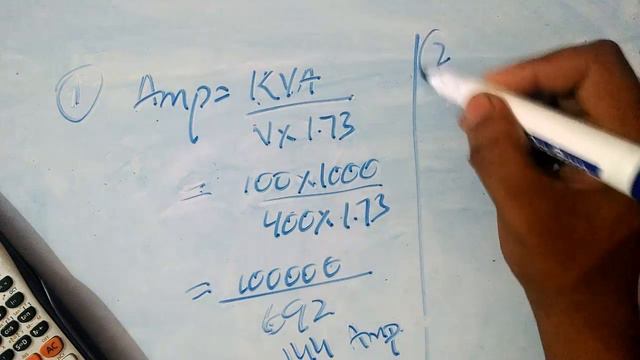 ① Amp = KVA
V x 1.73
= 100 x 1000
400 x 1.73
= 100000
692
144 Amp.
(2
AC